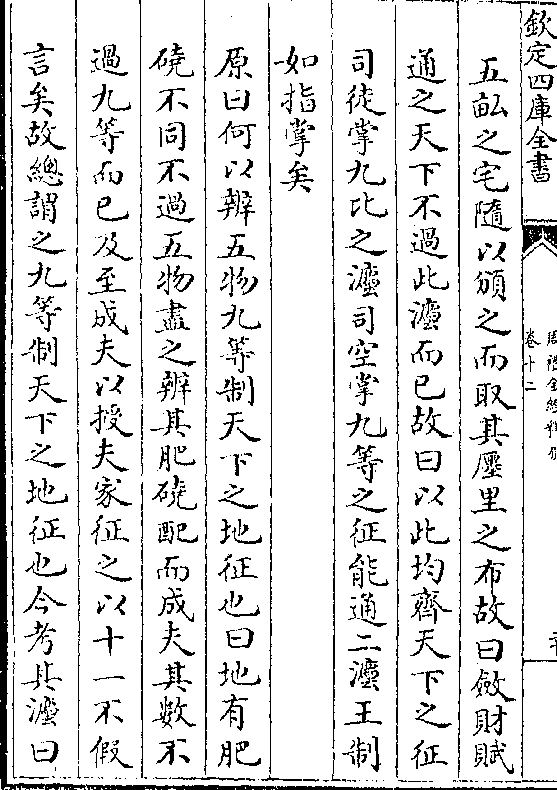 欽定四庫全書
卷十二
五畝之宅隨以頒之而取其廛里之布故曰斂財賦
通之天下不過此灋而已故曰以此均齊天下之征
司徒掌九比之灋司空掌九等之征能通二灋王制
如指掌矣
原曰何以辨五物九等制天下之地征也曰地有肥
磽不同不過五物盡之辨其肥磽配而成夫其數不
過九等而已及至成夫以授夫家征之以十一不假
言矣故總謂之九等制天下之地征也今考其灋曰